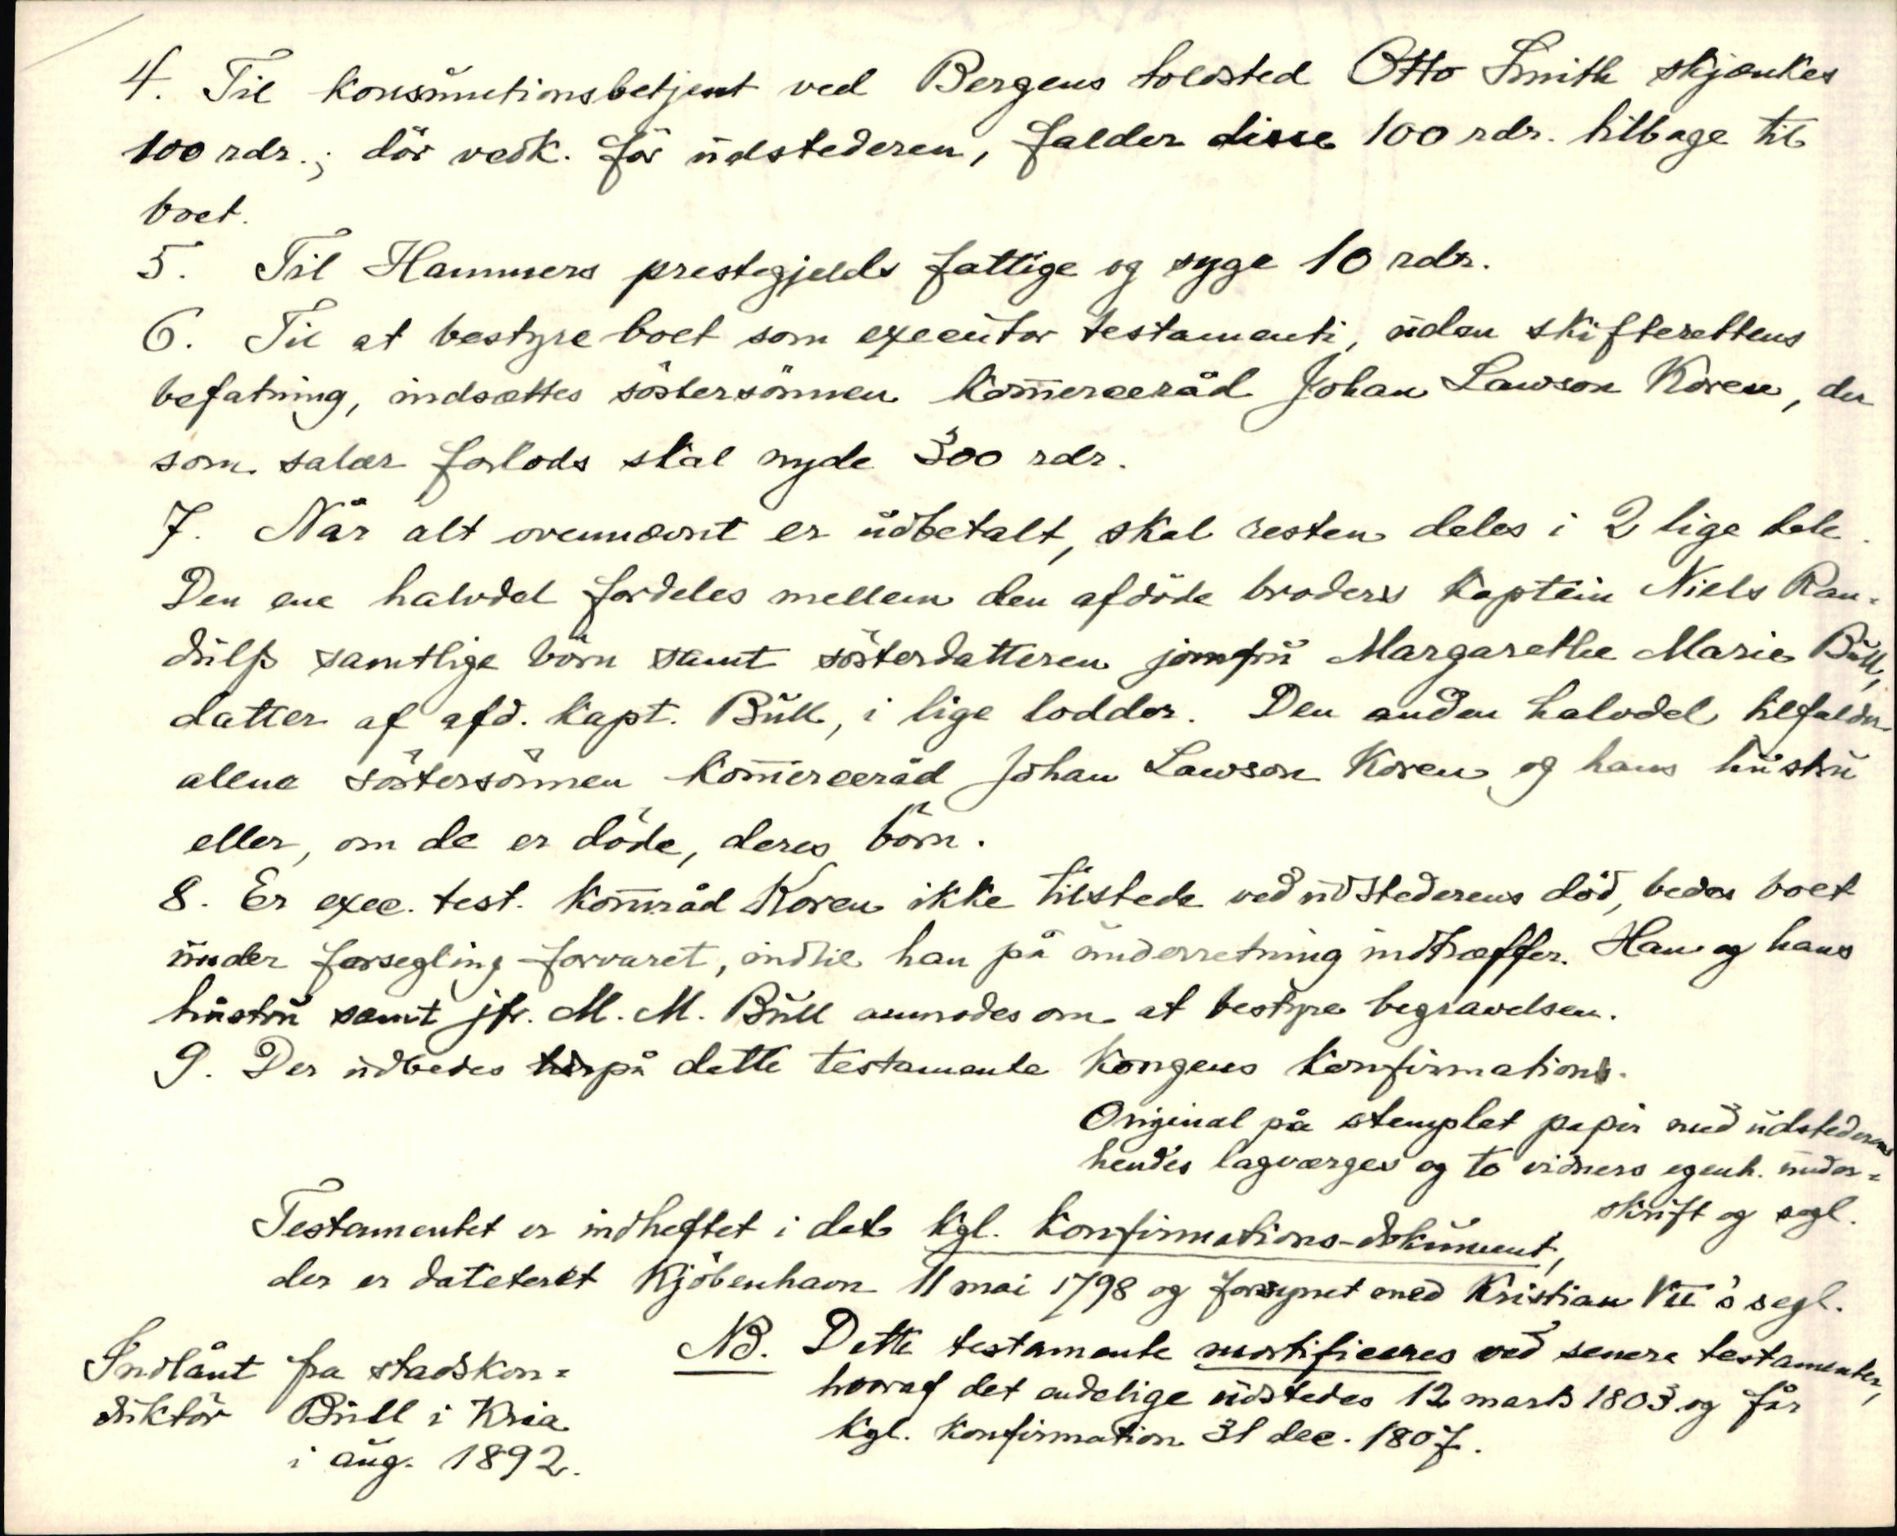 4. Til konsumtionsbetjent ved Bergens toldsted Otto Smith skjænkes
100 rdr.; dör vedk. för udstederen, falder disse 100 rdr. tilbage til
boet.
5. Til Hammers prestegjelds fattige og syge 10 rdr.
6. Til at bestyre boet som executor testamenti, uden skifterettens
befatning, indsættes söstersönnen kom̅erceråd Johan Lawson Koren, der
som salær forlods skal nyde 300 rdr.
7. Når alt ovennævnt er udbetalt, skal resten deles i 2 lige dele.
Den ene halvdel fordeles mellem den afdöde broders kaptein Niels Ran-
dulfs samtlige börn samt sösterdatteren jomfru Margarethe Marie Bull,
datter af afd. kapt. Bull, i lige lodder. Den anden halvdel tilfalder
alene söstersönnen kom̅erceråd Johan Lawson Koren og hans hustru
eller, om de er döde, deres börn.
8. Er exec. test. kom̅råd Koren ikke tilstede ved udstederens död, bedes boet
under forsegling forvaret, indtil han på underretning indtræffer. Han og hans
hustru samt jfr. M. M. Bull anmodes om at bestyre begravelsen.
9. Der udbedes på dette testamente kongens konfirmation.
Original på stemplet papir med udstederens
hendes lagværges og to vidners egenh. under-
skrift og segl.
Testamentet er indheftet i det kgl. konfirmations-dokument,
der er dateteret Kjöbenhavn 11 mai 1798 og forsynet med Kristian VII's segl.
NB. Dette testamente mortificeres ved senere testamenter,
hvoraf det endelige udstedes 12 marts 1803 og får
kgl. konfirmation 31 dec. 1807.
Indlånt fra stadskon-
duktör Bull i Kria
i aug. 1892.